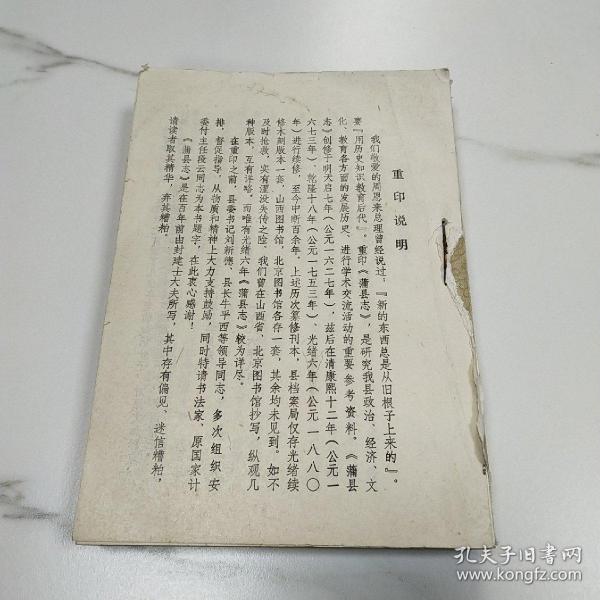 重印说明
我们敬爱的周恩来总理曾经说过：『新的东西总是从旧根子上来的』。
要『用历史知识教育后代』。重印《蒲县志》，是研究我县政治、经济、文
化、教育各方面的发展历史、进行学术交流活动的重要参考资料。《蒲县
志》创修于明天启七年（公元一六二七年），兹后在清康熙十二年（公元一
六七三年），乾隆十八年（公元一七五三年）、光绪六年（公元一八八〇
年）进行续修，至今中断百余年，上述历次纂修刊本，县档案局仅存光绪续
修木刻版本一套，山西图书馆，北京图书馆各存一套，其余均未见到。如不
及时抢救，实有湮没失传之险、我们曾在山西省、北京图书馆抄写，纵观几
种版本，互有详略，而唯有光绪六年《蒲县志》较为详尽。
在重印之前，县委书记刘新德、县长牛平西等领导同志，多次组织安
排，督促指导，从物质和精神上大力支持鼓励，同时特请书法家、原国家计
委付主任段云同志为本书题字，在此衷心感谢！
《蒲县志》是在百年前由封建士大夫所写，其中存有偏见、迷信糟粕，
请读者取其精华，弃其糟粕。
孔夫子旧书网
www.kongfz.com